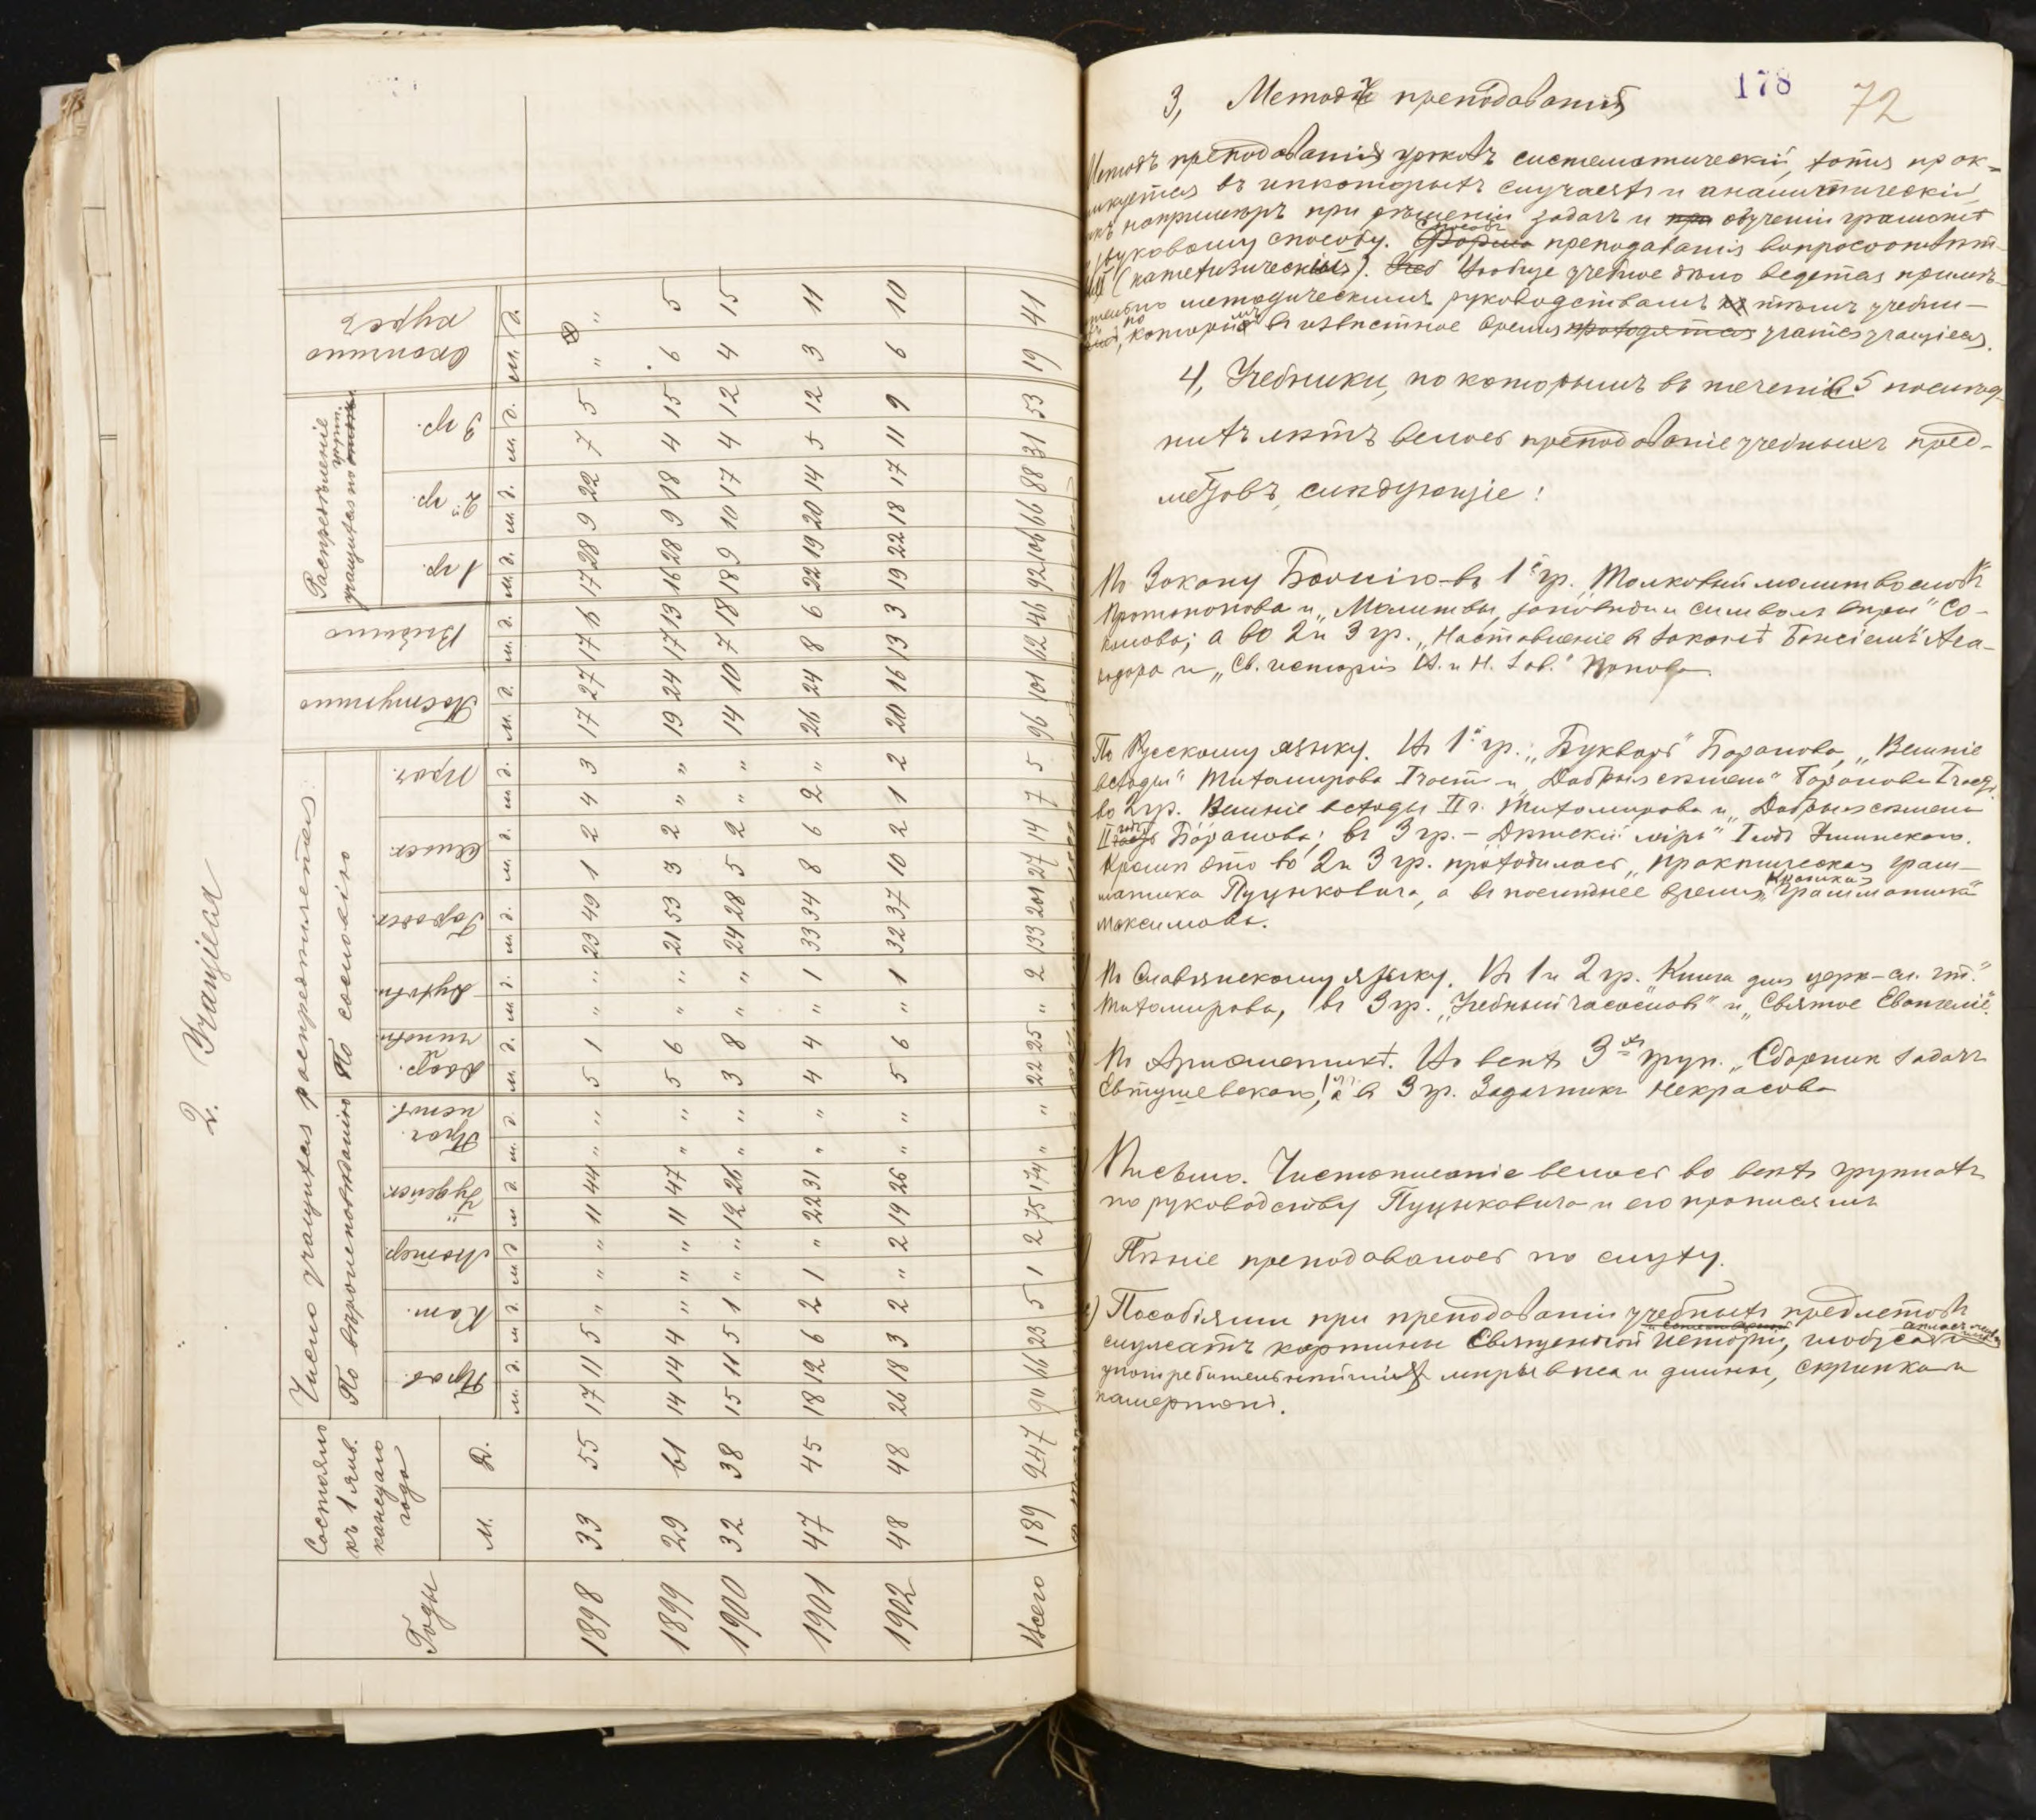 2. Учащіеся
Годы
Состояло къ 1 янв. каждаго года
М. Д.
Число учащихся распредѣляется
По вѣроисповѣданію
По сословію
Прав. Кат. Лютер. Іудейск. Проч. испов.
Двор. и чиновн. Духовн. Городск. Сельск. Проч.
Поступило
Выбыло
Распредѣленіе учащихся по групп.
1 гр. 2й гр. 3 гр.
Окончило курсъ
м. д.
1898 33 55 17 11 5 " " " 11 44 " " 5 1 " " 23 49 1 2 4 3 17 27 17 6 17 28 9 22 7 5 " "
1899 29 61 14 14 4 " " " 11 47 " " 5 6 " " 21 53 3 2 " " 19 24 17 13 16 28 9 18 4 15 6 5
1900 32 38 15 11 5 1 " " 12 26 " " 3 8 " " 24 28 5 2 " " 14 10 7 18 18 9 10 17 4 12 4 15
1901 47 45 18 12 6 2 1 " 22 31 " " 4 4 " 1 33 34 8 6 2 " 26 24 8 6 22 19 20 14 5 12 3 11
1902 48 48 26 18 3 2 " 2 19 26 " " 5 6 " 1 32 37 10 2 1 2 20 16 13 3 19 22 18 17 11 9 6 10
Всего 189 247 90 66 23 5 1 2 75 174 " " 22 25 " 2 133 201 27 14 7 5 96 101 62 46 92 106 66 88 31 53 19 41
178
72
3, Методъ преподаванія
Методъ преподаванія уроковъ систематическій, хотя прак-
тикуется въ нѣкоторыхъ случаяхъ и аналитическій,
какъ напримѣръ при рѣшеніи задачъ и при обученіи грамотѣ
звуковому способу. Способъ преподаванія вопросоотвѣт-
ный (катехизическій). Вообще учебное дѣло ведется примѣ-
нительно методическимъ руководствамъ къ тѣмъ учебни-
камъ, по которымъ въ извѣстное время учатся учащіеся.
4, Учебники, по которымъ въ теченіе 5 послѣд-
нихъ лѣтъ велось преподаваніе учебныхъ пред-
метовъ, слѣдующіе:
По Закону Божію – въ 1й гр. Толковый молитвословъ
Протопопова и „Молитвы, заповѣди и символъ вѣры" Со-
колова; а во 2 и 3 гр. „Наставленіе въ законѣ Божіемъ" Ага-
ѳодора и „Св. исторія В. и Н. Зав." Попова.
По Русскому языку. Въ 1й гр. „Букварь" Баранова, „Вешніе
всходы" Тихомирова I часть и „Добрыя сѣмена" Баранова I часть,
во 2 гр. Вешніе всходы II ч. Тихомирова и „Добрыя сѣмена
II годъ Баранова; въ 3 гр. – Дѣтскій міръ" I годъ Ушинскаго.
Кромѣ этого во 2 и 3 гр. проходилась „практическая грам-
матика Пуцыковича, а въ послѣднее время „Краткая грамматика"
Максимова.
По Славянскому языку. Въ 1 и 2 гр. „Книга для церк-сл. чт."
Тихомирова, въ 3 гр. „Учебный часословъ" и „Святое Евангеліе".
По Ариѳметикѣ. Во всѣхъ 3хъ груп. „Сборникъ задачъ
Евтушевскаго", а въ 3 гр. Задачникъ Некрасова
Письмо. Чистописаніе велось во всѣхъ группахъ
по руководству Пуцыковича и его прописямъ
Пѣніе преподавалось по слуху.
Пособіями при преподаваніи учебныхъ предметовъ
служатъ картины Священной Исторіи, глобусъ,
употребительнѣйшія мѣры вѣса и длины, скрипка и
камертонъ.